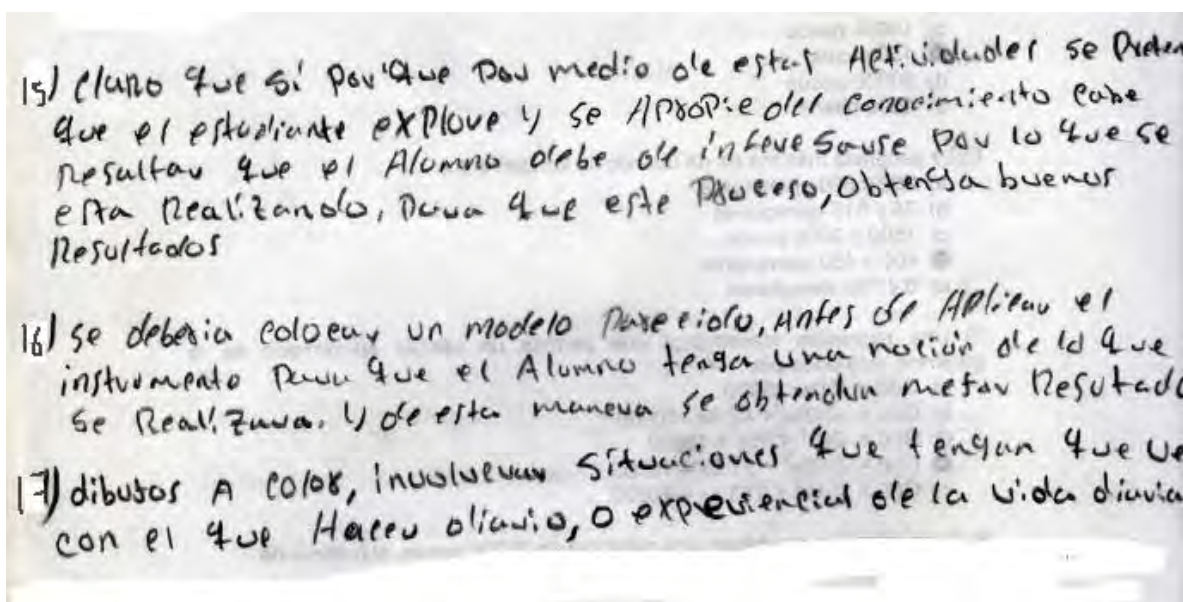 15) Claro que sí por que por medio de estas Actividades se Preten
que el estudiante explore y se Apropie del conocimiento cabe
Resaltar que el Alumno debe de interesarse por lo que se
esta Realizando, para que este Proceso, Obtenga buenos
Resultados
16) se deberia colocar un modelo Parecido, Antes de Aplicar el
instrumento para que el Alumno tenga una noción de lo que
se Realizara. y de esta manera se obtendra mejor Resutado
17) dibujos A color, involucrar situaciones que tengan que ve
con el que Hacer diario, o experiencial de la vida diaria